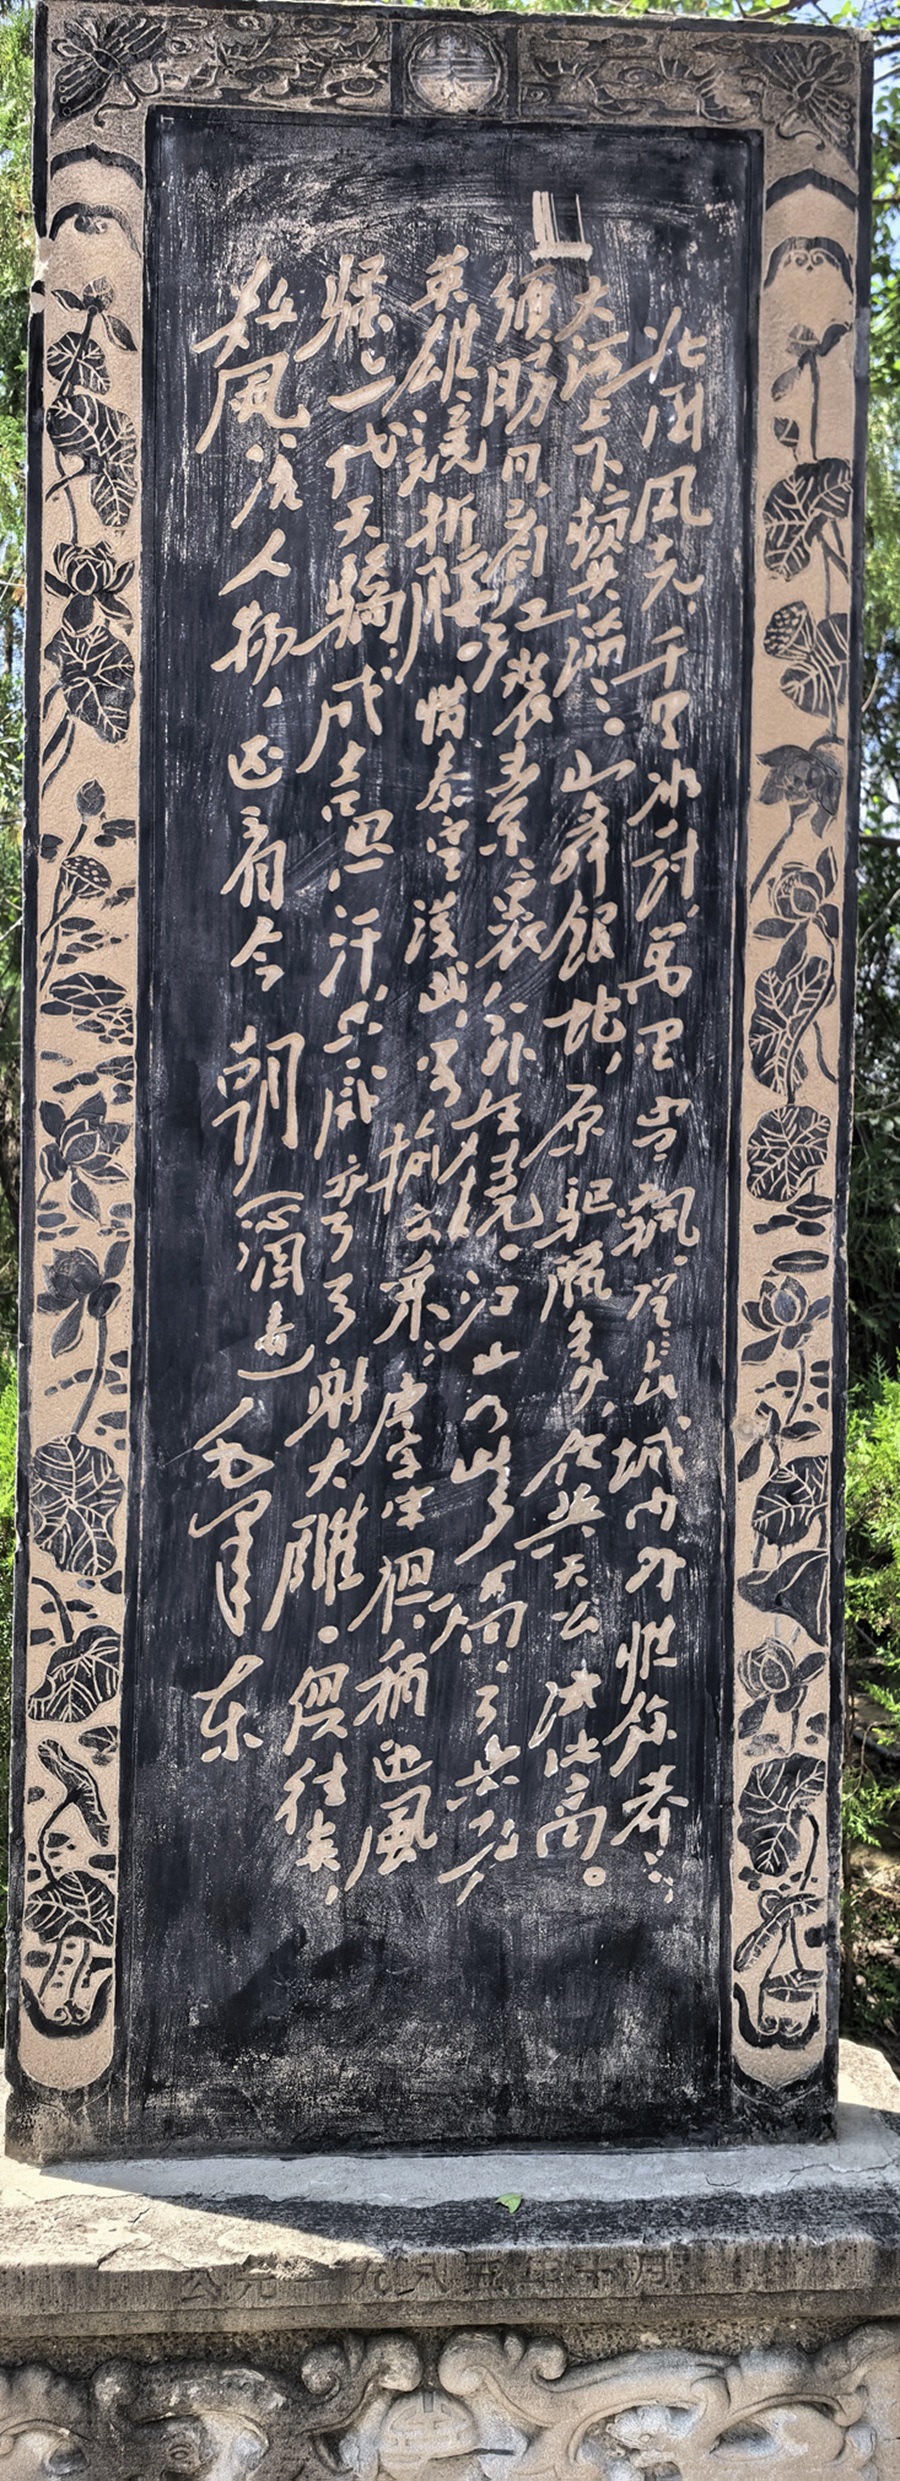 北国风光，千里冰封，萬里雪飘。望长城内外，惟餘莽莽；
大河上下，頓失滔滔。山舞銀蛇，原驰腊象，欲與天公試比高。
須晴日，看红装素裹，分外妖娆。江山如此多嬌，引無數
英雄競折腰。惜秦皇漢武，略输文采；唐宗宋祖，稍逊風
騷。一代天驕，成吉思汗，只识弯弓射大雕。俱往矣，
数風流人物，还看今朝 沁园春 毛泽东
公元一九八五年十月